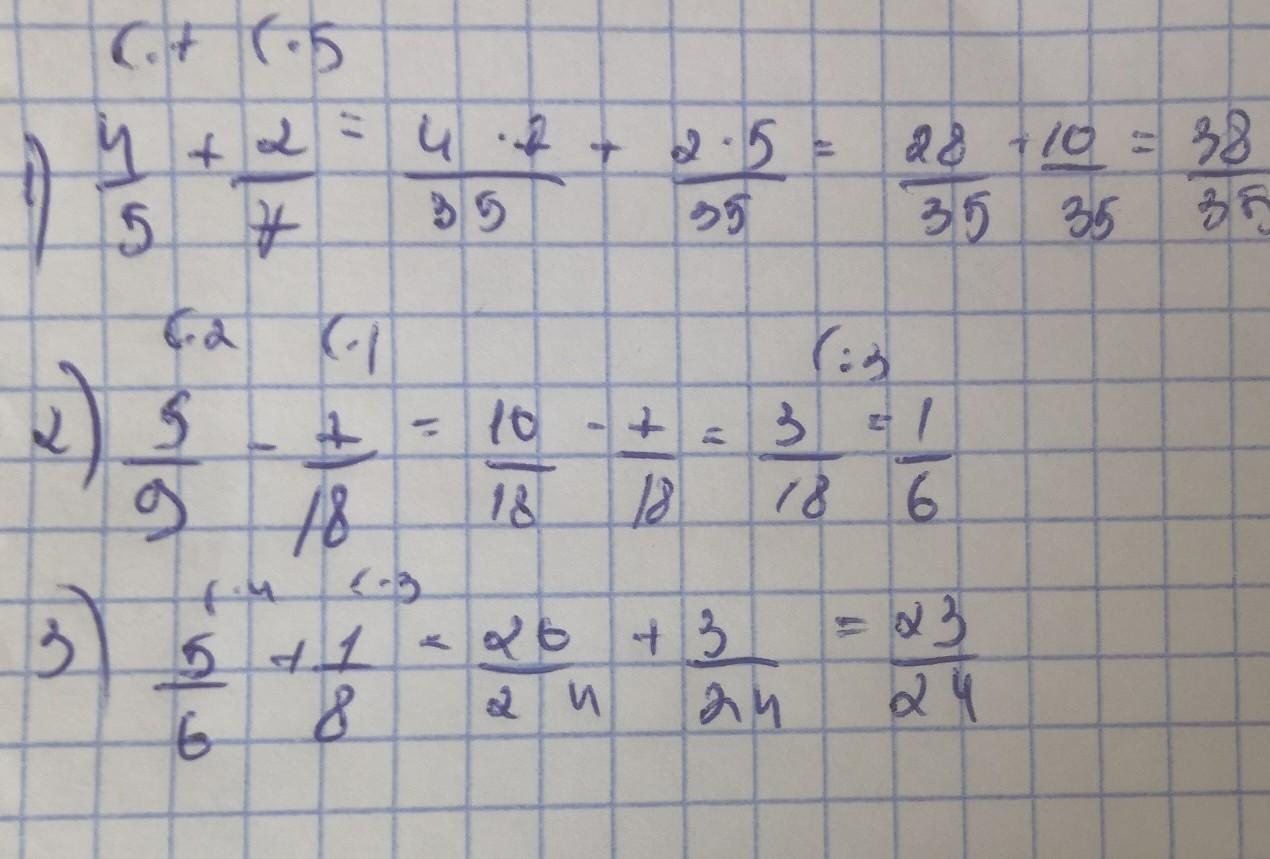 (·7 (·5
1) 4/5 + 2/7 = 4·7/35 + 2·5/35 = 28/35 + 10/35 = 38/35
(·2 (·1 (:3
2) 5/9 - 7/18 = 10/18 - 7/18 = 3/18 = 1/6
(·4 (·3
3) 5/6 + 1/8 = 20/24 + 3/24 = 23/24